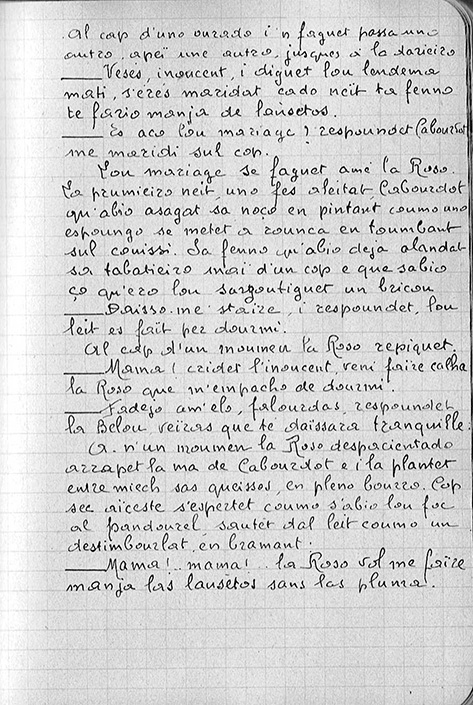 Al cap d'uno ourado i n faguet passa uno
autro, apeï une autro, jusques à la darieiro
— Veses, inoucent, i diguet lou lendema
mati, s'eres maridat cado neit ta fenno
te fario manja de lausetos.
— Es aco lou mariage? respoundet Cabourdot
me maridi sul cop.
Lou mariage se faguet amé la Roso.
La prumieiro neit, uno fes aleitat, Cabourdot
qu'abio asagat sa noço en pintant coumo uno
espoungo se metet a rounca en toumbant
sul couissi. Sa fenno qu'abio deja alandat
sa tabatieiro mai d'un cop e que sabio
ço qu'ero lou sargoutiguet un bricou
— Daisso-me staire, i respoundet, lou
leit es fait per dourmi.
Al cap d'un moumen la Roso repiquet.
— Mama! cridet l'inoucent, veni faire calha
la Roso que m'empacho de dourmi.
— Fadejo am'elo, falourdas, respoundet
la Belou, veiras que te daissara tranquille.
A n'un moumen la Roso despacientado
arrapet la ma de Cabourdot e i la plantet
entremiech sas queissos, en pleno bourro. Cop
sec aïceste s'espertet coumo s'abio lou foc
al pandourel, sautet dal leit coumo un
destimbourlat, en bramant:
— Mama!.. mama! la Roso vol me faire
manja las lausetos sans las pluma.